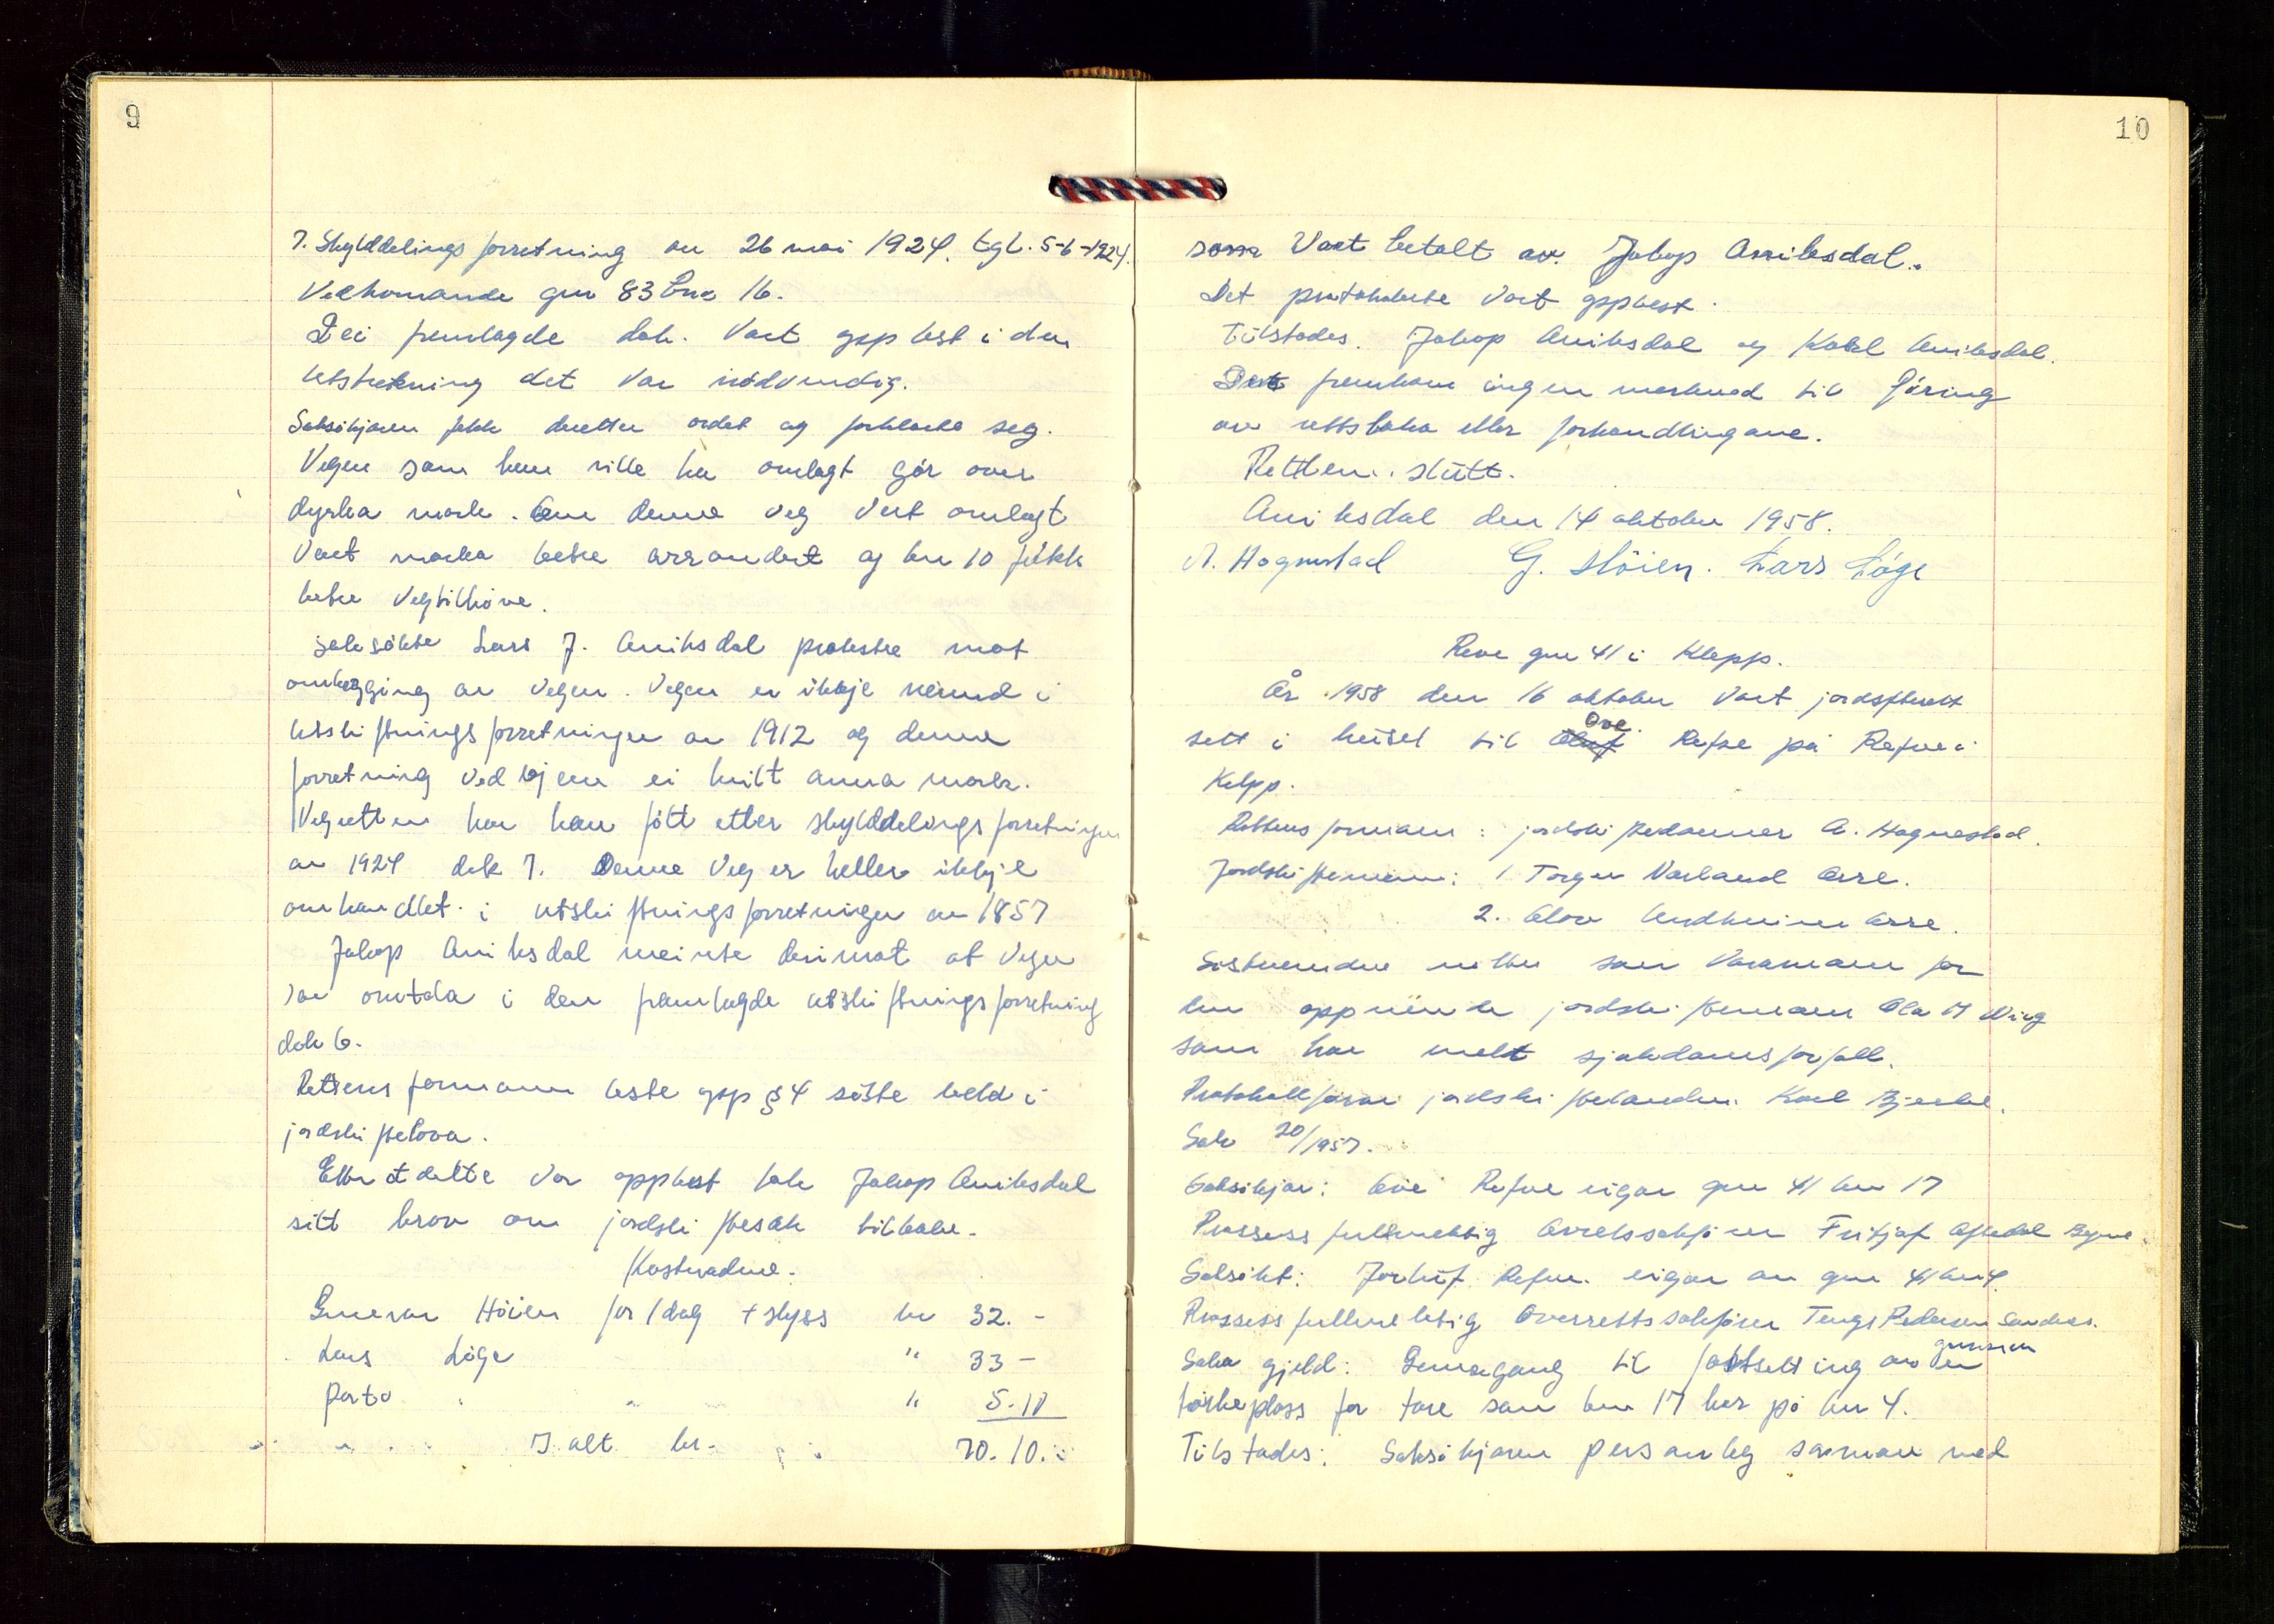 9
7. Skylddelingsforretning av 26 mai 1924. tgl. 5-6-1924.
Vedkomande gnr 83 bnr 16.
Dei framlagde dok. vart opplest i den
utstrekning det var nødvendig.
Saksøkjaren fekk deretter ordet og forklarte seg.
Vegen som han ville ha omlagt går over
dyrka mark. Om denne veg vert omlagt
vart marka betre arrondert og bnr 10 fekk
betre vegtilhøve.
Saksøkte Lars J. Aniksdal protestre mot
omlegging av vegen. Vegen er ikkje nemnd i
utskiftningsforretningen av 1912 og denne
forretning vedkjem ei heilt anna mark.
Vegretten har han fått etter skylddelingsforretningen
av 1924 dok 7. Denne veg er heller ikkje
omhandlet i utskiftningsforretningen av 1857
Jakop Aniksdal meinte derimot at vegen
var omtala i den framlagde utskiftningsforretning
dok 6.
Rettens formann leste opp § 4 siste ledd i
jordskiftelova.
Etter at dette var opplest tok Jakop Aniksdal
sitt krav om jordskiftesak tilbake.
Kostnadene.
Gunnar Höien for 1 dag + skyss kr 32.-
Lars Löge " 33-
Porto " 5.10
I alt kr. 70.10.
10
som vart betalt av Jakop Aniksdal.
Det protokolerte vart opplest.
Tilstades. Jakop Aniksdal og Karl Aniksdal.
Det framkom ingen merknad til føring
av rettsboka eller forhandlingane.
Retten slutt.
Aniksdal den 14 oktober 1958.
A. Hognestad G. Höien. Lars Löge
Reve gnr 41 i Klepp.
År 1958 den 16 oktober vart jordskifterett
sett i huset til Ove Refve på Refve i
Kelpp.
Rettens formann: jordskiftedommer A. Hognestad.
Jordskiftemenn: 1 Torger Varland Orre.
2. Olav Orre.
Sistnemnde møtte som varamann for
den oppnemnde jordskiftemann Ola M
som har meldt sjukdomsforfall.
Protokollførar jordskiftekandidat Karl
Sak 20/1957.
Saksøkjar: Ove Refve eigar gnr 41 bnr 17
Prosessfullmektig Overrettssakfører Fritjof Aftedal Bryne.
Saksøkt: Refve eigar av gnr 41 bnr 4.
Prosessfullmektig Overrettssakfører Tengs Pedersen Sandnes.
Saka gjeld: Grensegang til fastsetting av grensen
tørkeplass for tare som bnr 17 har på bnr 4.
Tilstades: Saksøkjaren personleg saman med